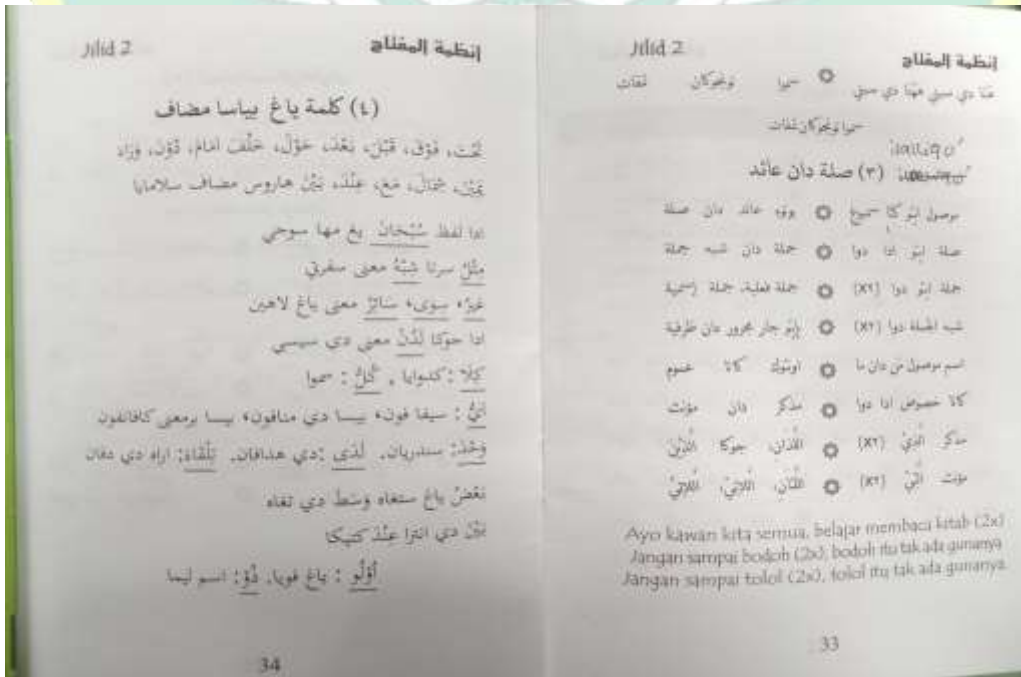 Jilid 2 إنظمة المفتاح
هنا دي سيني هنا دي سيني ۞ سموا
سموا
(٣) صلة دان عائد
موصول ايتو ۞ عائد دان صلة
صلة ايتو ادا دوا ۞ جملة دان شبه جملة
جملة ايتو دوا (x٢) ۞ جملة فعلية، جملة إسمية
شبه الجملة دوا (x٢) ۞ جار مجرور دان ظرفية
اسم موصول من دان ما ۞ اونتوك عموم
خصوص ادا دوا ۞ مذكر دان مؤنث
مذكر الَّذِيْ (x٢) ۞ اللَّذَانِ، جوكا الَّذِيْنَ
مؤنث الَّتِيْ (x٢) ۞ اللَّتَانِ، اللاَّتِيْ، اللاَّئِيْ
Ayo kawan kita semua, belajar membaca kitab (2x)
Jangan sampai bodoh (2x), bodoh itu tak ada gunanya
Jangan sampai tolol (2x), tolol itu tak ada gunanya.
33
Jilid 2 إنظمة المفتاح
(٤) كلمة ياغ بياسا مضاف
تَحْتَ، فَوْقَ، قَبْلَ، بَعْدَ، حَوْلَ، خَلْفَ، اَمَامَ، دُوْنَ، وَرَاءَ
يَمِيْنَ، شِمَالَ، مَعَ، عِنْدَ، بَيْنَ هاروس مضاف سلامايا
ادا لفظ سُبْحَانَ يغ مها سوچي
مِثْلُ سرتا شِبْهُ معنى سفرتي
غَيْرُ، سِوَى، سَائِرُ معنى ياغ لاهين
ادا جوكا لَدُنْ معنى دي سيسي
كِلَا : كدوايا ، كُلُّ : سموا
اَيُّ : سيفا فون، بيسا دي منافون، بيسا برمعنى كافانفون
وَحْدَ: سنديريان، لَدَى :دي هدافان، تِلْقَاءَ: اراه دي دفان
بَعْضُ ياغ ستغاه وَسْطَ دي تغاه
بَيْنَ دي انترا عِنْدَ كتيكا
أُوْلُو : ياغ فويا، ذُوْ: اسم ليما
34